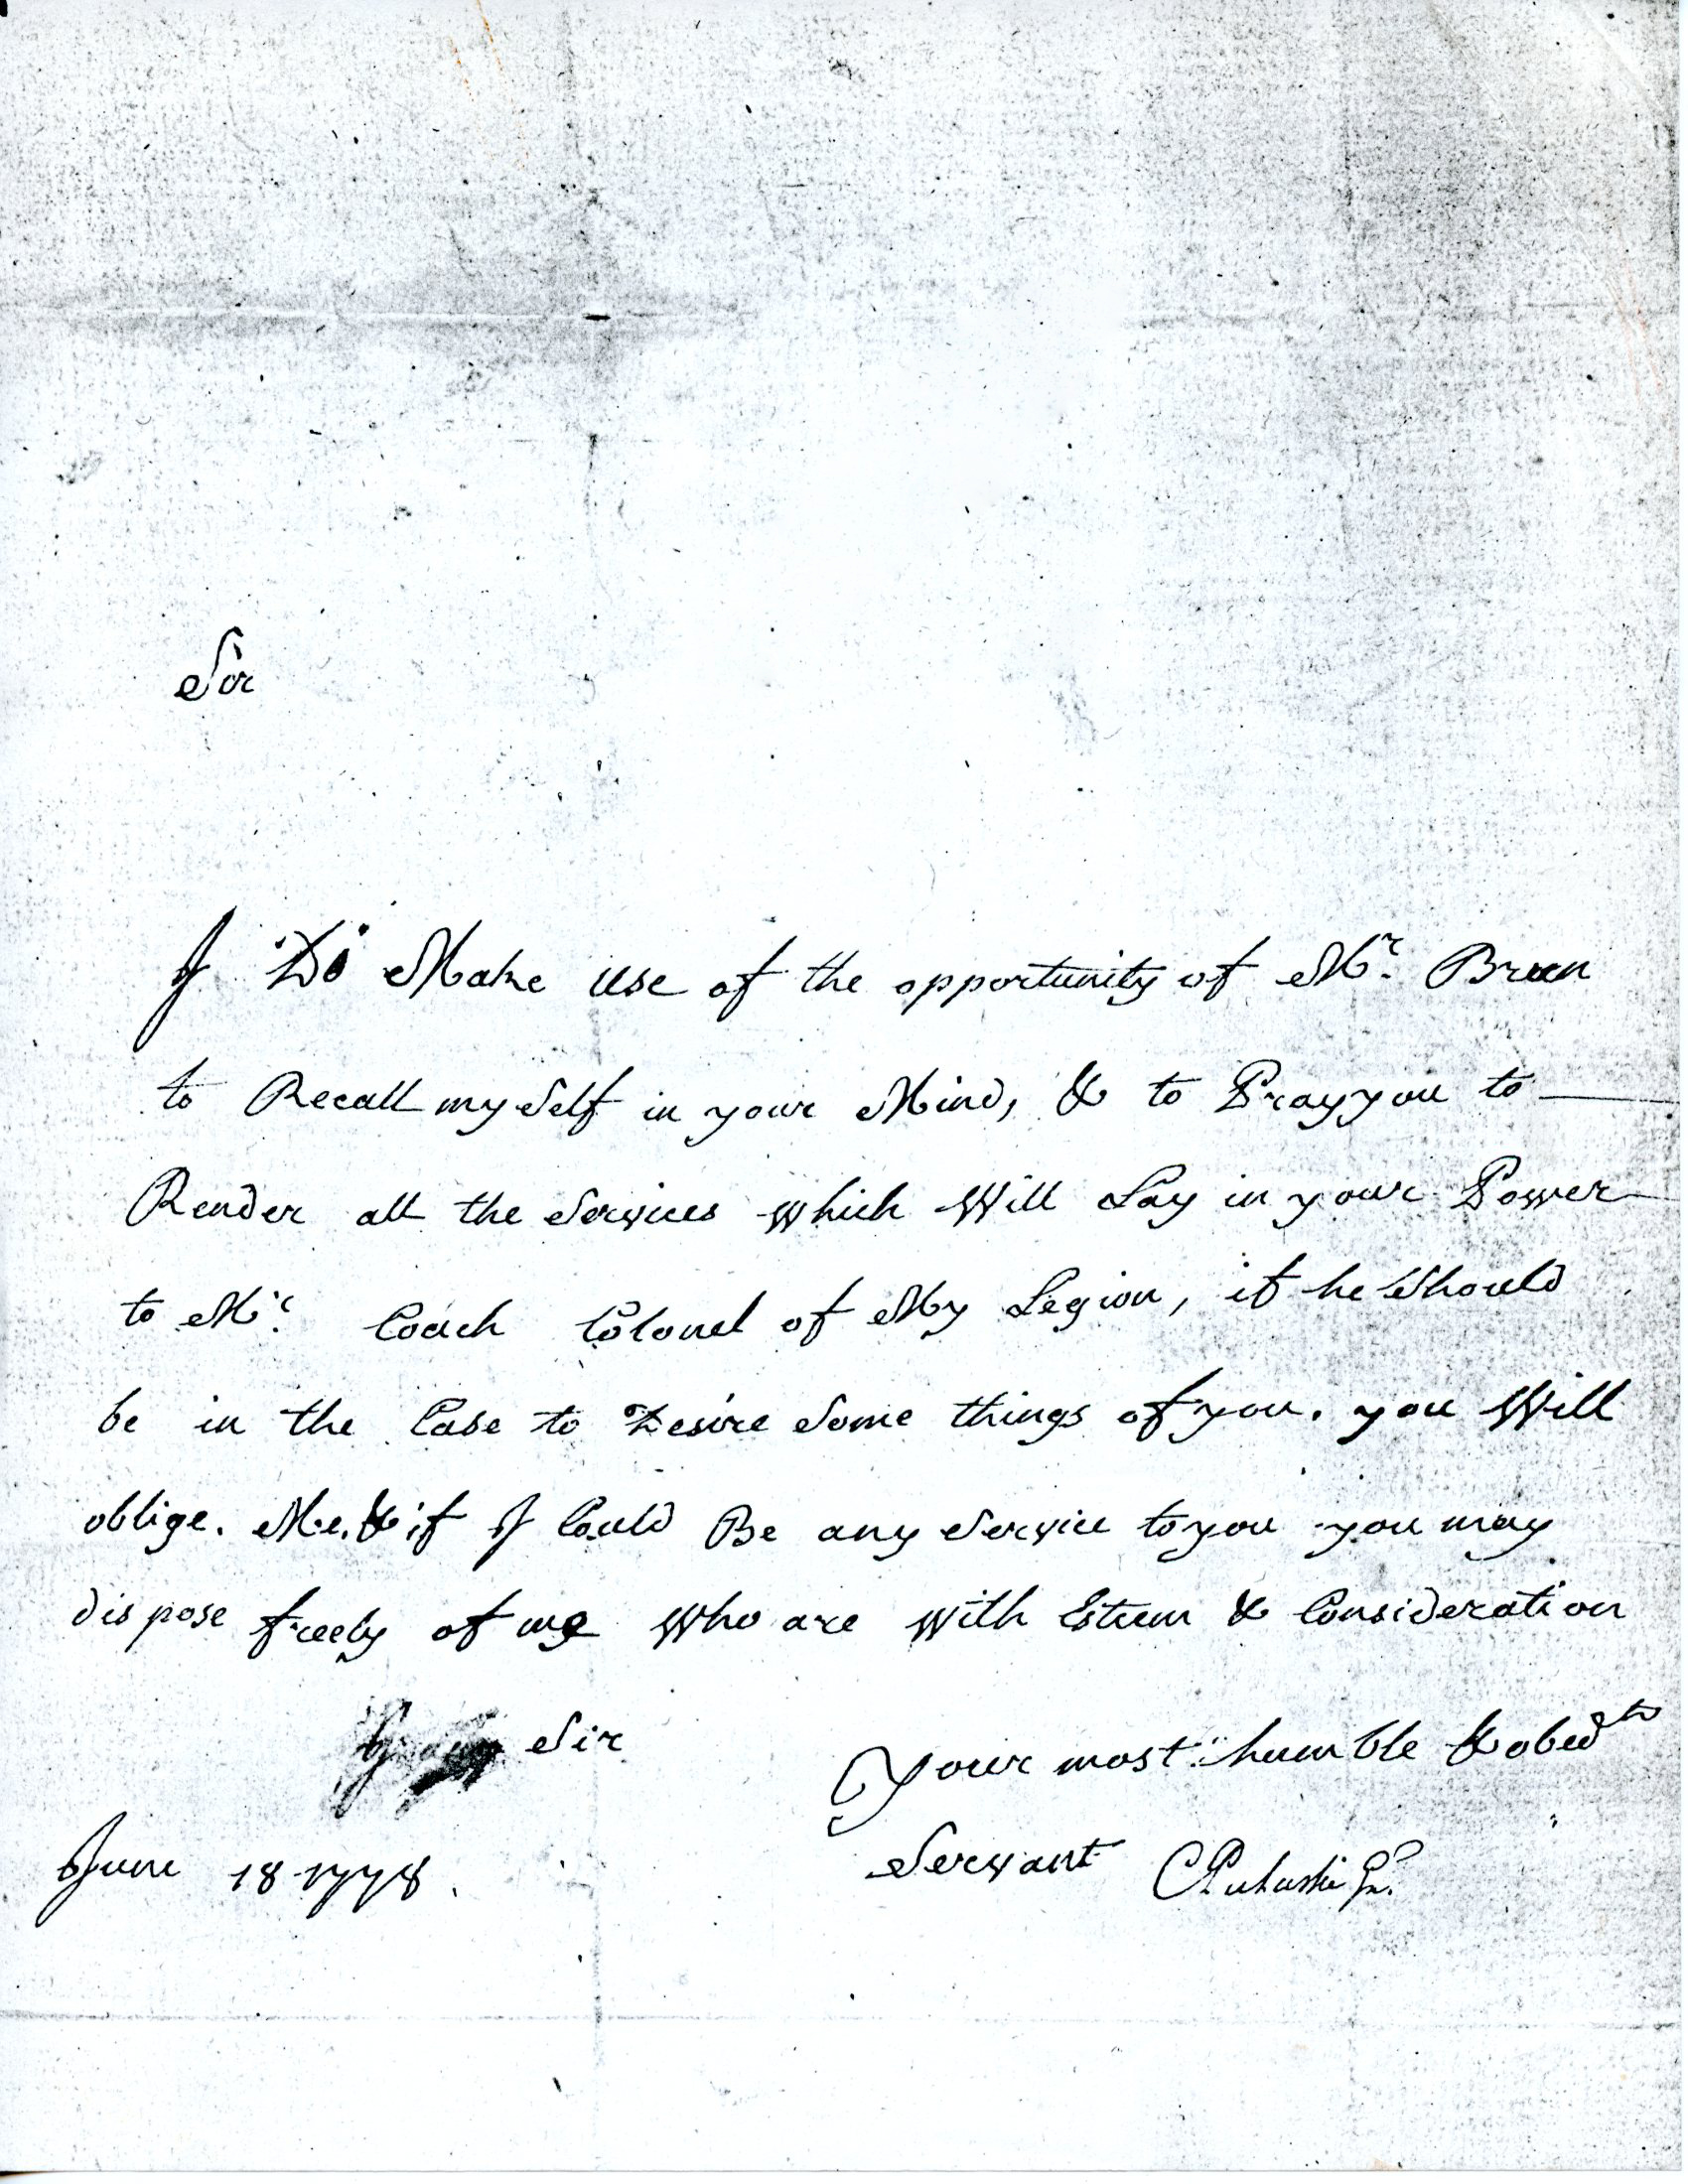 Sir
I Do Make use of the opportunity of Mr. Bruen
to Recall my Self in your Mind, & to Pray you to
Render all the Services which Will Lay in your Power
to Mr. Coach Colonel of My Legion, if he Should
be in the Case to Desire Some things of you. you Will
oblige. Me. & if I Could Be any Service to you you may
dispose freely of me who are with Esteem & Consideration
Sir
Your most humble & obedt
Servant CPulaski Gl.
June 18 1778.